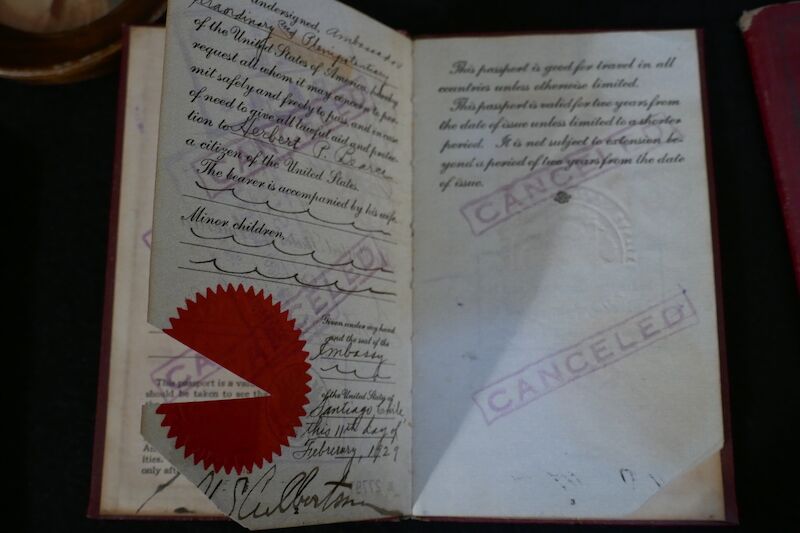 undersigned, Ambassador
Extraordinary and Plenipotentiary
of the United States of America, hereby
request all whom it may concern to per-
mit safely and freely to pass, and in case
of need to give all lawful aid and protec-
tion to Herbert P. Bearce
a citizen of the United States.
The bearer is accompanied by his wife,
Minor children,
Given under my hand
and the seal of the
Embassy
of the United States of
Santiago, Chile
this 11th day of
February, 1929
W S Culbertson
This passport is a
should be taken to see
only
This passport is good for travel in all
countries unless otherwise limited.
This passport is valid for two years from
the date of issue unless limited to a shorter
period. It is not subject to extension be-
yond a period of two years from the date
of issue.
CANCELED
CANCELED
CANCELED
CANCELED
3